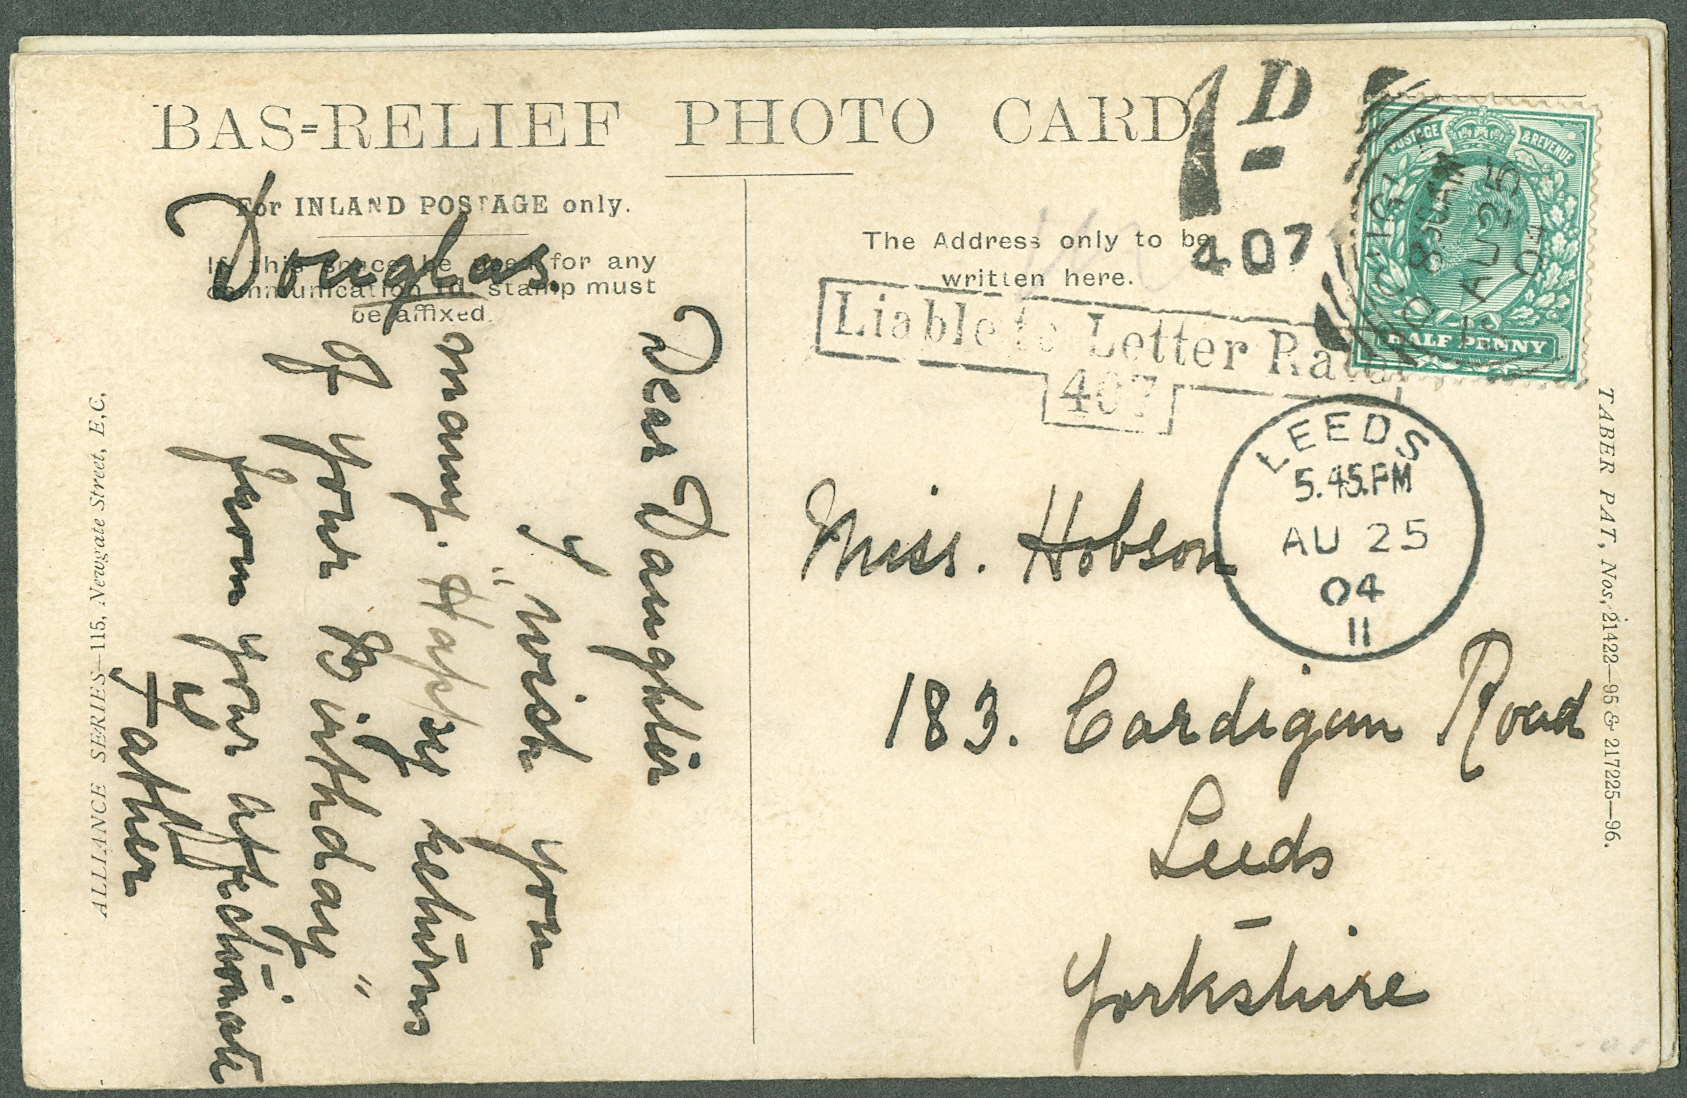 BAS-RELIEF PHOTO CARD
For INLAND POSTAGE only.
If this space be used for any
communication 1d. stamp must
be affixed.
The Address only to be
written here.
1D
407
Liable to Letter Rate
407
POSTAGE & REVENUE
HALF PENNY
8 30 AM
AU 25
04
LEEDS
5.45.PM
AU 25
04
11
Douglas.
Dear Daughter
I wish you
many. "Happy returns
of your Birthday"
from your affectionate
Father
Miss. Hobson
183. Cardigan Road
Leeds
Yorkshire
ALLIANCE SERIES—115, Newgate Street, E.C.
TABER PAT, Nos, 21422—95 & 217225—96.